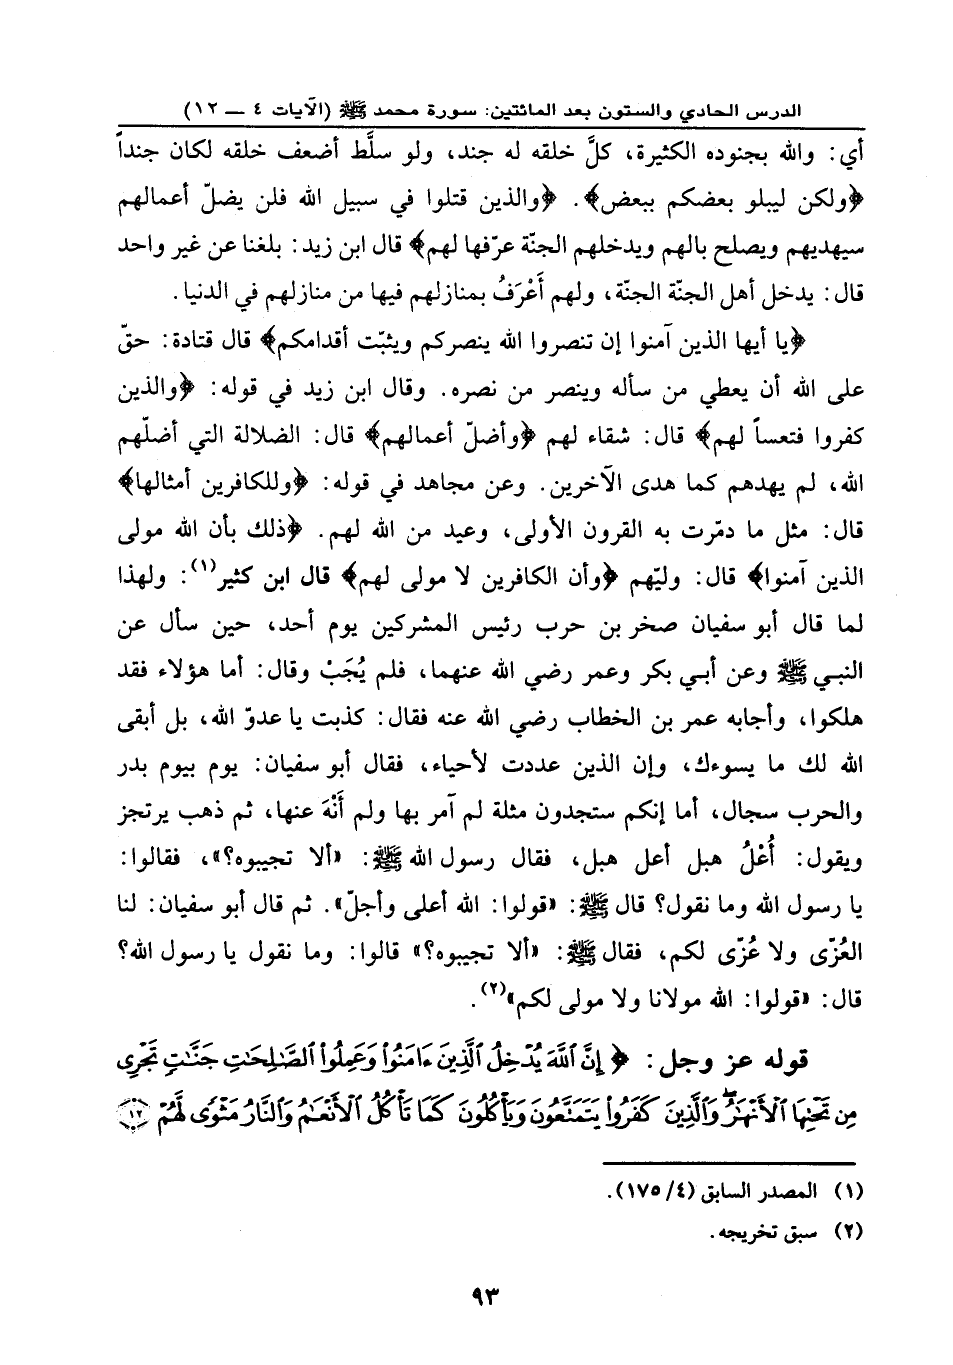 الدرس الحادي والستون بعد المائتين: سورة محمد ﷺ (الآيات ٤ ــ ١٢)
أي: والله بجنوده الكثيرة، كلَّ خلقه له جند، ولو سلَّط أضعف خلقه لكان جنداً
﴿ولكن ليبلو بعضكم ببعض﴾. ﴿والذين قتلوا في سبيل الله فلن يضلّ أعمالهم
سيهديهم ويصلح بالهم ويدخلهم الجنّة عرّفها لهم﴾ قال ابن زيد: بلغنا عن غير واحد
قال: يدخل أهل الجنّة الجنّة، ولهم أَعْرَفُ بمنازلهم فيها من منازلهم في الدنيا.
﴿يا أيها الذين آمنوا إن تنصروا الله ينصركم ويثبّت أقدامكم﴾ قال قتادة: حقّ
على الله أن يعطي من سأله وينصر من نصره. وقال ابن زيد في قوله: ﴿والذين
كفروا فتعساً لهم﴾ قال: شقاء لهم ﴿وأضلّ أعمالهم﴾ قال: الضلالة التي أضلّهم
الله، لم يهدهم كما هدى الآخرين. وعن مجاهد في قوله: ﴿وللكافرين أمثالها﴾
قال: مثل ما دمّرت به القرون الأولى، وعيد من الله لهم. ﴿ذلك بأن الله مولى
الذين آمنوا﴾ قال: وليّهم ﴿وأن الكافرين لا مولى لهم﴾ قال ابن كثير(١): ولهذا
لما قال أبو سفيان صخر بن حرب رئيس المشركين يوم أحد، حين سأل عن
النبي ﷺ وعن أبي بكر وعمر رضي الله عنهما، فلم يُجَبْ وقال: أما هؤلاء فقد
هلكوا، وأجابه عمر بن الخطاب رضي الله عنه فقال: كذبت يا عدوّ الله، بل أبقى
الله لك ما يسوءك، وإن الذين عددت لأحياء، فقال أبو سفيان: يوم بيوم بدر
والحرب سجال، أما إنكم ستجدون مثلة لم آمر بها ولم أَنْهَ عنها، ثم ذهب يرتجز
ويقول: أُعْلُ هبل أعل هبل، فقال رسول الله ﷺ: «ألا تجيبوه؟»، فقالوا:
يا رسول الله وما نقول؟ قال ﷺ: «قولوا: الله أعلى وأجلّ». ثم قال أبو سفيان: لنا
العُزّى ولا عُزّى لكم، فقال ﷺ: «ألا تجيبوه؟» قالوا: وما نقول يا رسول الله؟
قال: «قولوا: الله مولانا ولا مولى لكم»(٢).
قوله عز وجل: ﴿إِنَّ ٱللَّهَ يُدۡخِلُ ٱلَّذِينَ ءَامَنُواْ وَعَمِلُواْ ٱلصَّـٰلِحَـٰتِ جَنَّـٰتٍ تَجۡرِي
مِن تَحۡتِهَا ٱلۡأَنۡهَـٰرُۖ وَٱلَّذِينَ كَفَرُواْ يَتَمَتَّعُونَ وَيَأۡكُلُونَ كَمَا تَأۡكُلُ ٱلۡأَنۡعَـٰمُ وَٱلنَّارُ مَثۡوًى لَّهُمۡ ۝١٢
(١) المصدر السابق (٤/ ١٧٥).
(٢) سبق تخريجه.
٩٣